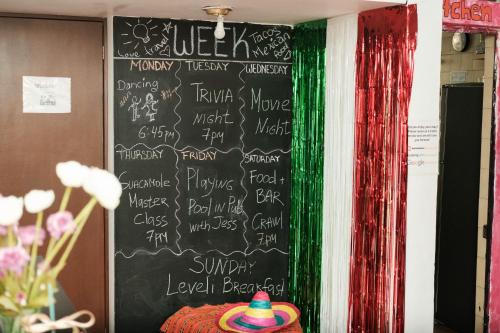 love travel
WEEK
Tacos
Mexican
food
MONDAY
Dancing
6:45pm
TUESDAY
TRIVIA
Night
7pm
WEDNESDAY
Movie
Night
THURSDAY
GUACAMOLE
Master
Class
7pm
FRIDAY
Playing
Pool in Pub
with Jess
SATURDAY
Food +
BAR
CRAWL
7pm
SUNDAY
Leveli Breakfast
Kitchen
Google